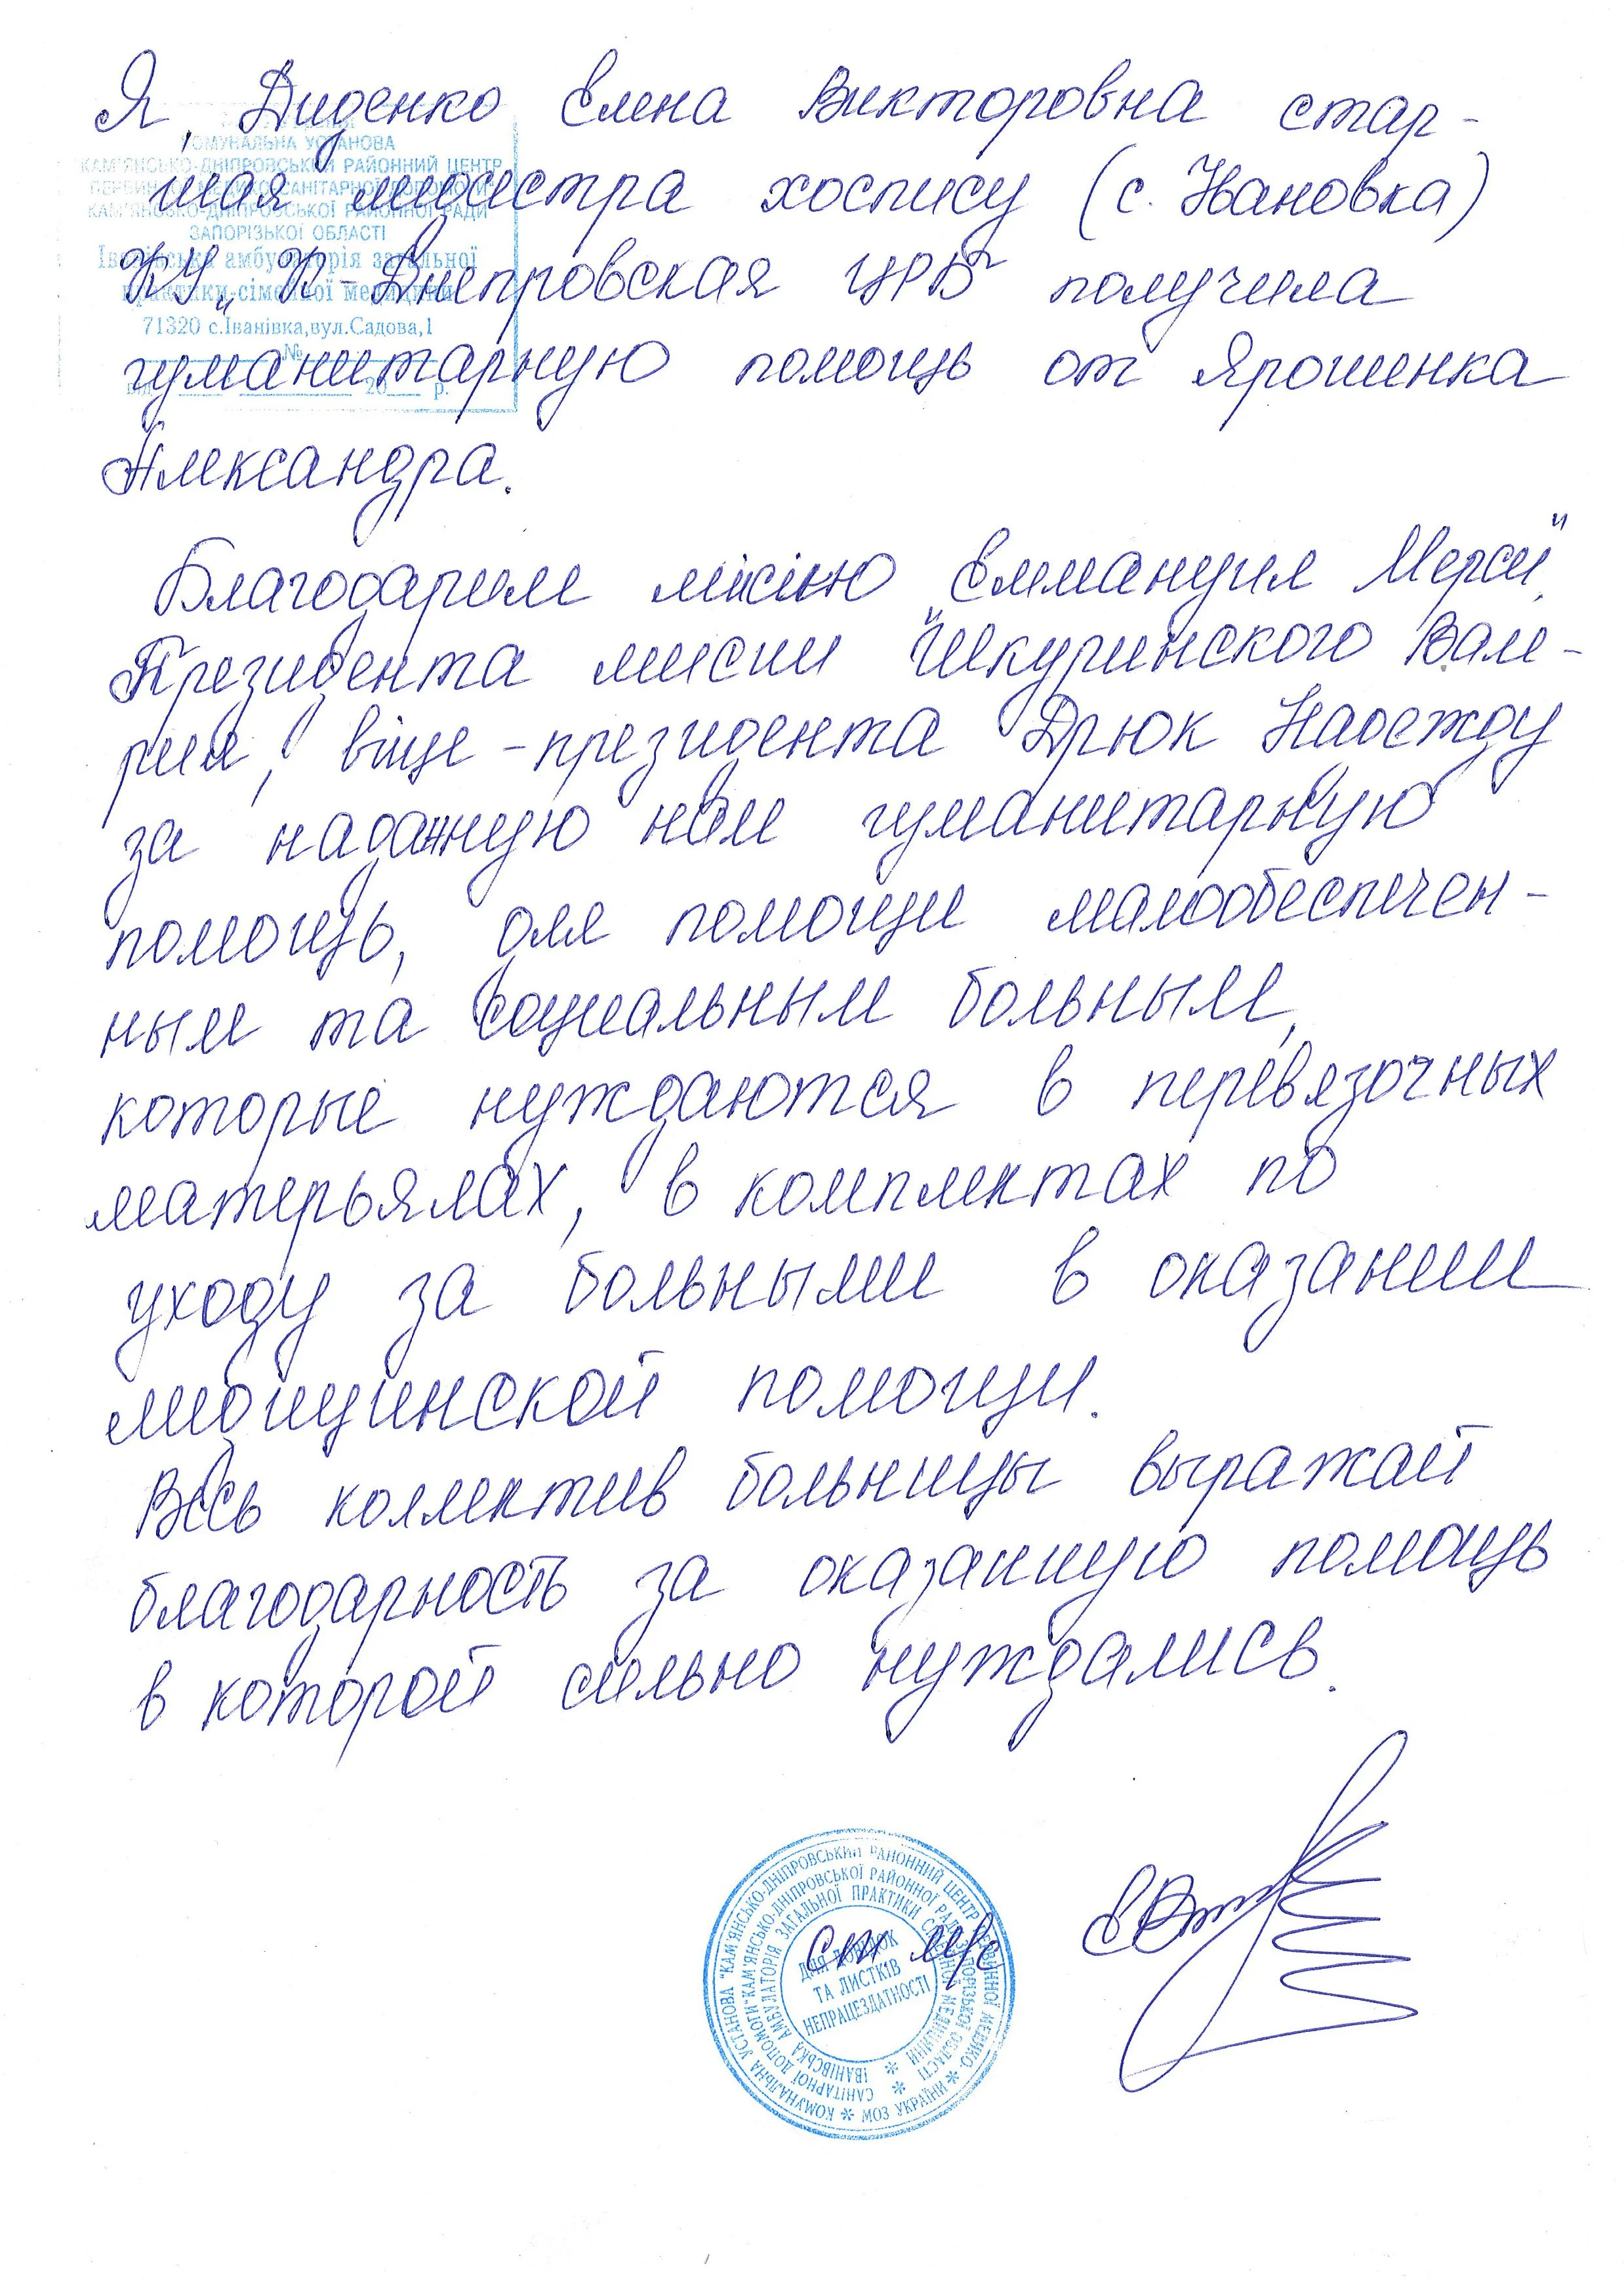 Я, Диденко Елена Викторовна стар-
шая медсестра хоспису (с. Ивановка)
КУ „К-Днепровская ЦРБ" получила
гуманитарную помощь от Ярошенка
Александра.
Благодарим місію „Еммануил Мерси",
Президента мисии Шкуринского Вале-
рия, віце-президента Дрюк Надежду
за наданную нам гуманитарную
помощь, для помощи малообеспечен-
ным та социальным больным,
которые нуждаются в перевязочных
матерьялах, в комплектах по
уходу за больными в оказании
медицинской помощи.
Весь коллектив больницы выражает
благодарность за оказанную помощь
в которой сильно нуждались.
КОМУНАЛЬНА УСТАНОВА
КАМ'ЯНСЬКО-ДНІПРОВСЬКИЙ РАЙОННИЙ ЦЕНТР
ПЕРВИННОЇ МЕДИКО-САНІТАРНОЇ ДОПОМОГИ
КАМ'ЯНСЬКО-ДНІПРОВСЬКОЇ РАЙОННОЇ РАДИ
ЗАПОРІЗЬКОЇ ОБЛАСТІ
Іванівська амбулаторія загальної
практики-сімейної медицини
71320 с.Іванівка,вул.Садова,1
№
від 20 р.
ст м/с
КОМУНАЛЬНА УСТАНОВА "КАМ'ЯНСЬКО-ДНІПРОВСЬКИЙ РАЙОННИЙ ЦЕНТР ПЕРВИННОЇ МЕДИКО-
САНІТАРНОЇ ДОПОМОГИ" КАМ'ЯНСЬКО-ДНІПРОВСЬКОЇ РАЙОННОЇ РАДИ ЗАПОРІЗЬКОЇ ОБЛАСТІ
ІВАНІВСЬКА АМБУЛАТОРІЯ ЗАГАЛЬНОЇ ПРАКТИКИ СІМЕЙНОЇ МЕДИЦИНИ
МОЗ УКРАЇНИ
ДЛЯ ДОВІДОК
ТА ЛИСТКІВ
НЕПРАЦЕЗДАТНОСТІ